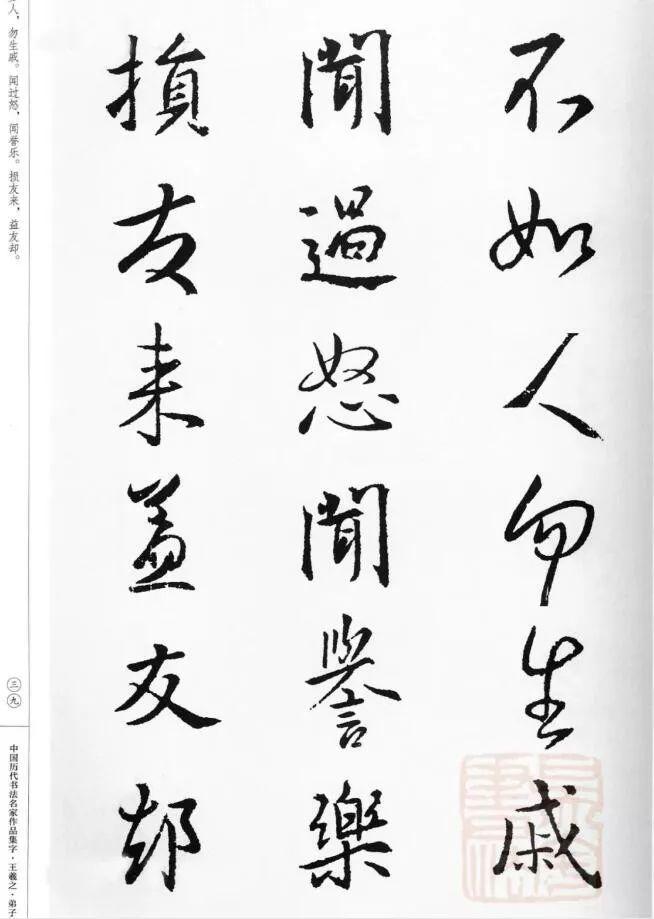 不如人勿生戚
聞過怒聞譽樂
損友来益友却
人，勿生戚。闻过怒，闻誉乐。损友来，益友却。
三九
中国历代书法名家作品集字·王羲之·弟子